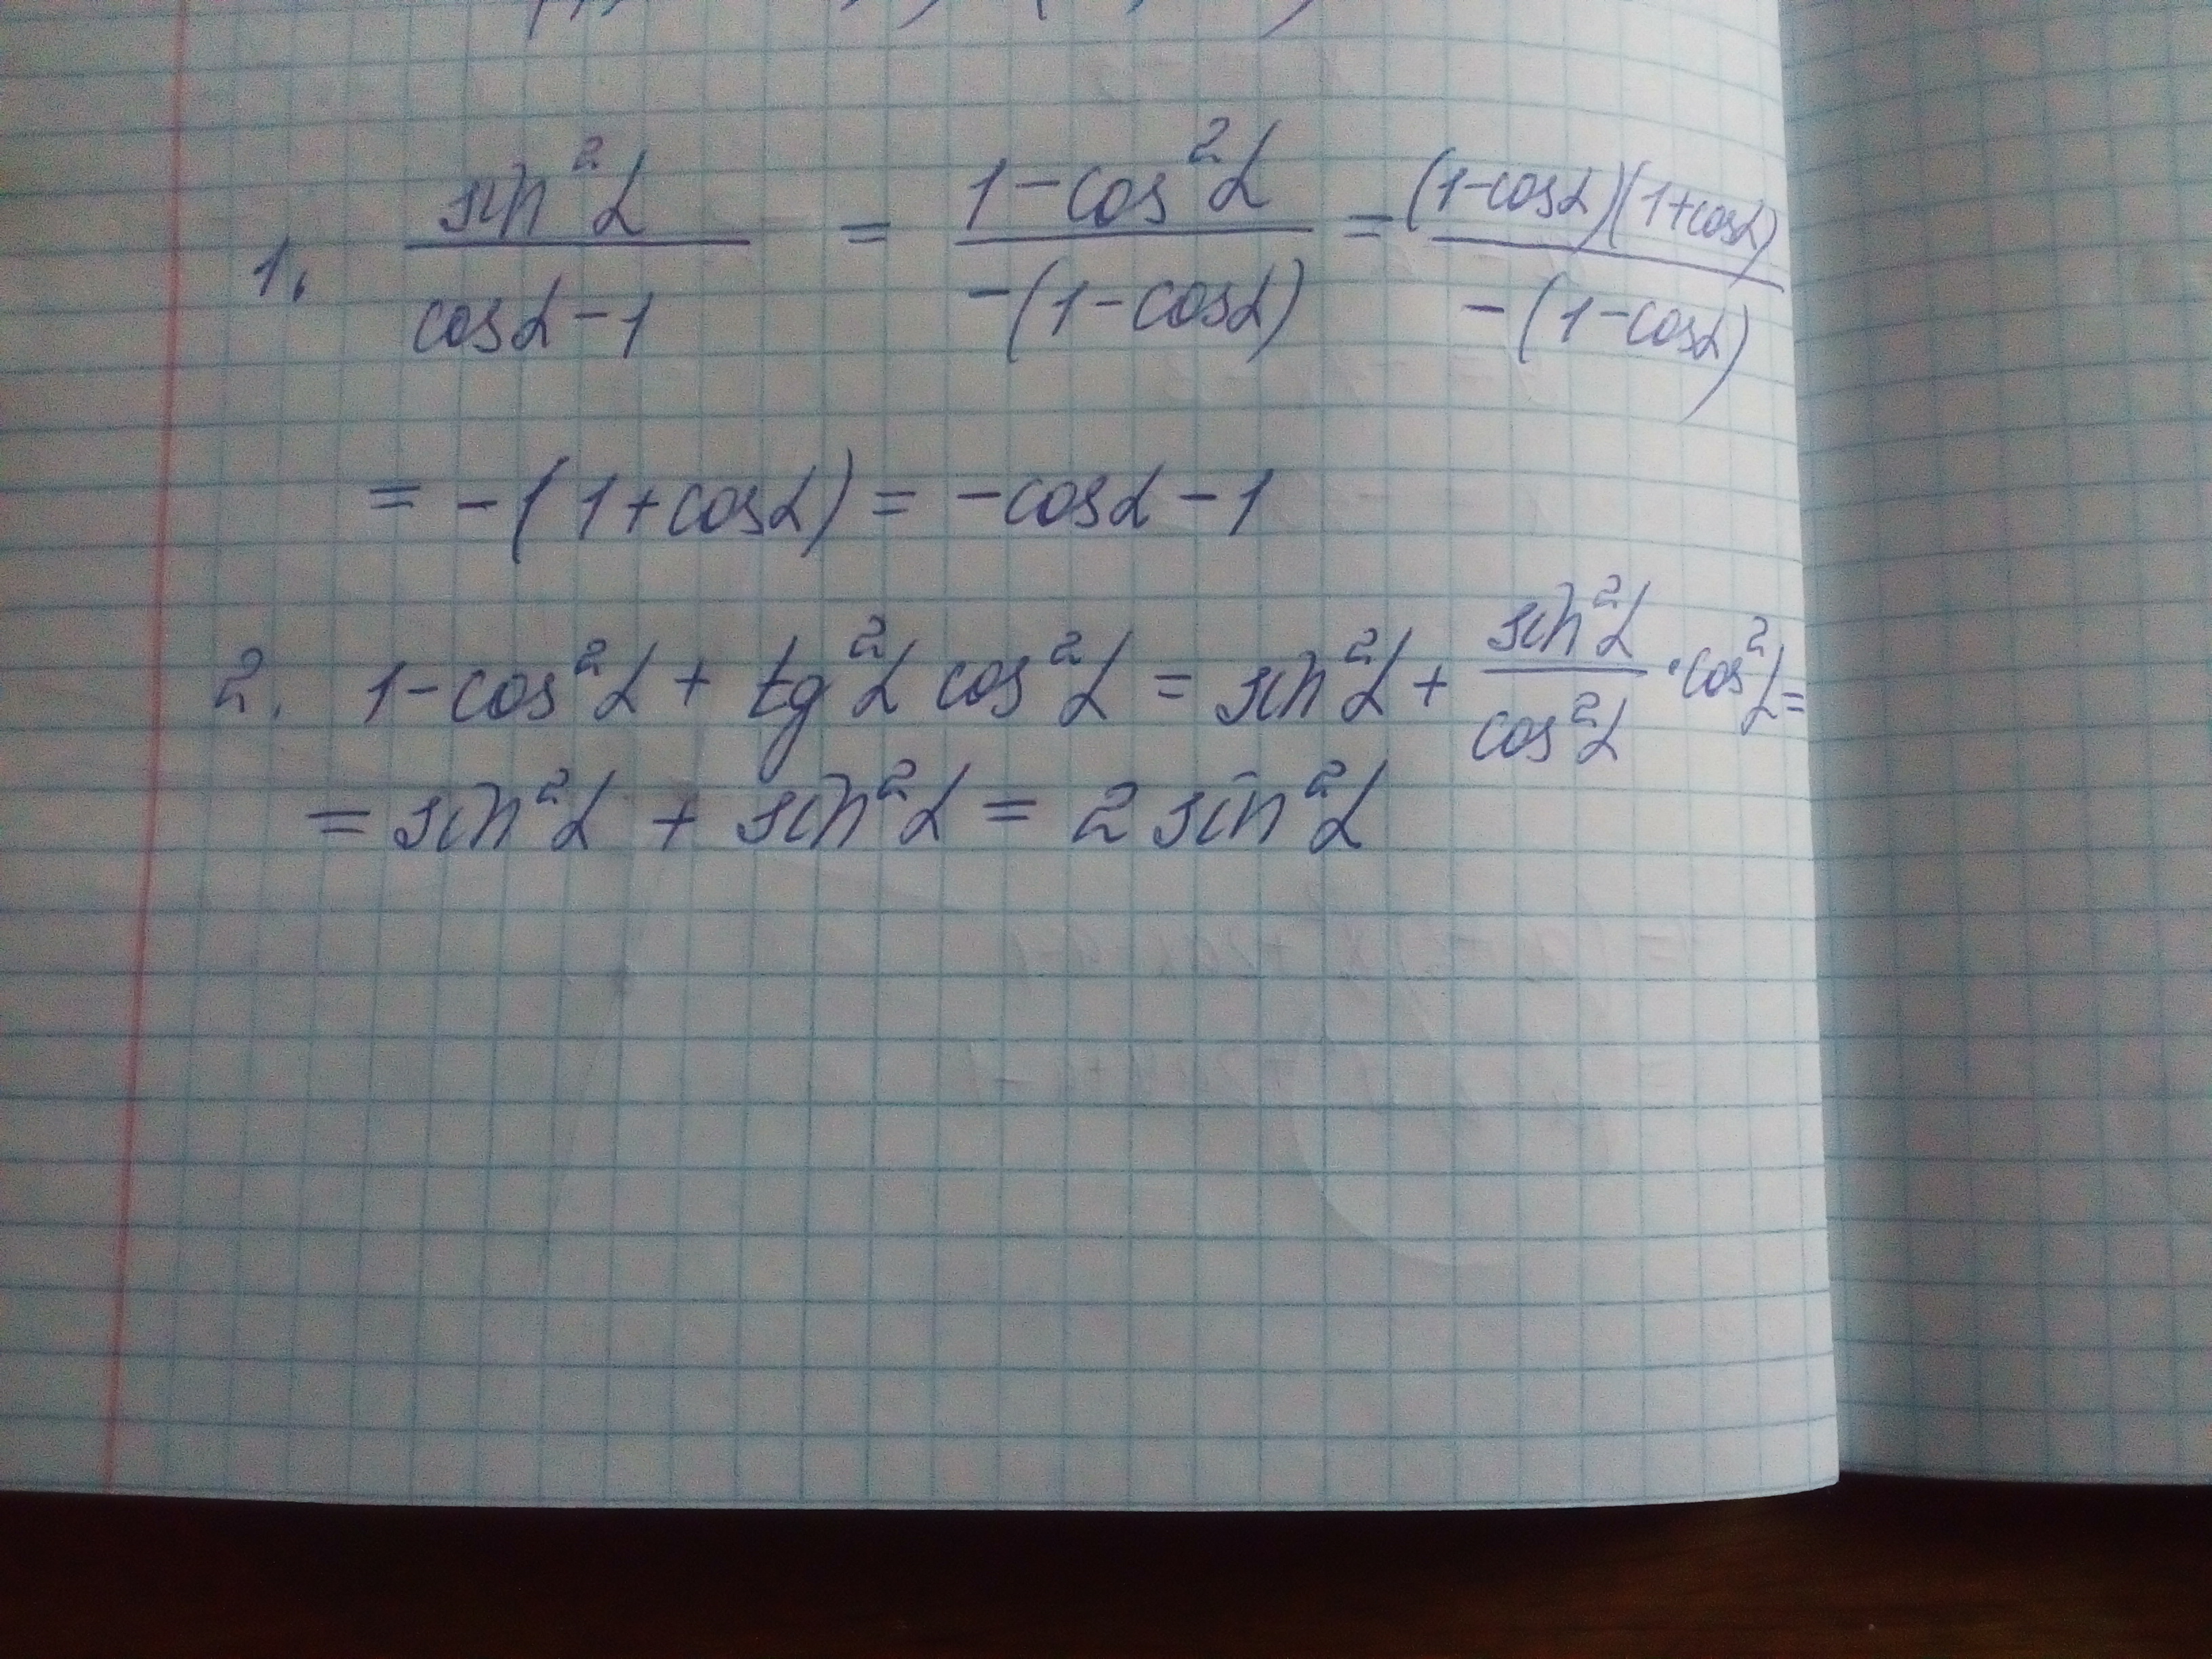 1. sin²α / (cosα - 1) = (1 - cos²α) / (-(1 - cosα)) = ((1 - cosα)(1 + cosα)) / (-(1 - cosα))
= -(1 + cosα) = -cosα - 1
2. 1 - cos²α + tg²α cos²α = sin²α + sin²α / cos²α · cos²α =
= sin²α + sin²α = 2 sin²α